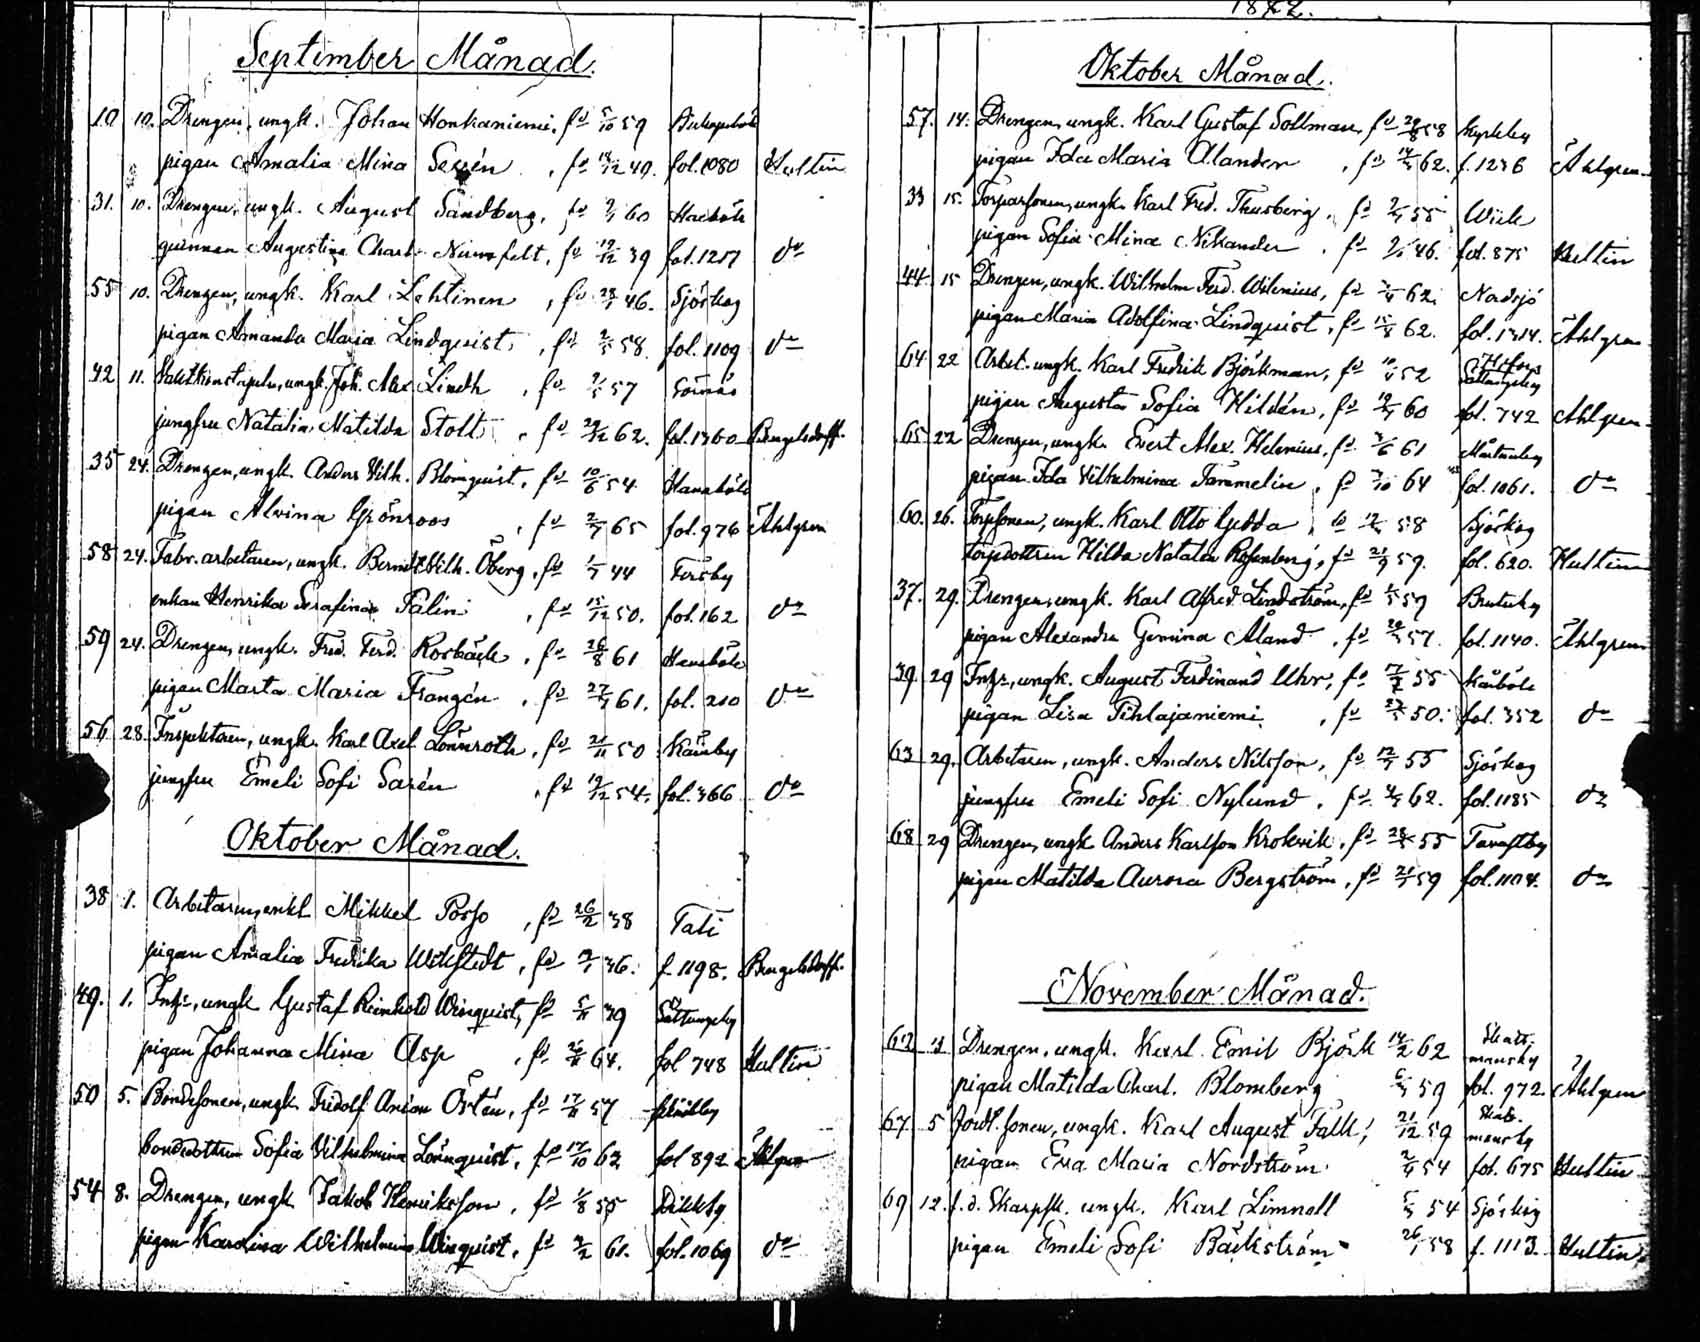 September Månad.
10 10. Drengen, ungk. Johan Honkaniemi, fd 5/10 59
pigan Amalia Mina Serén, fd /12 49. fol. 1080 Hultin
31. 10. Drengen, ungk. August Sandberg, fd 60
qvinnan Augustina Charl. fd 19/12 39 fol. 1217 do
55 10. Drengen, ungk. Karl Lehtinen, fd 46. Sjöskog
pigan Amanda Maria Lindquist, fd 58. fol. 1109 do
42 11. ungk. Joh. Alex Lindh, fd 57
jungfru Natalia Matilda Stolt, fd 29/12 62. fol. 1360 Bengelsdorff.
35 24. Drengen, ungk. Anders Vilh. Blomquist, fd 10/6 54
pigan Alvina Grönroos, fd 65 fol. 976 Åhlgren
58 24. Fabr. arbetaren, ungk. Vilh. Öberg, fd 44 Fersby
enkan Henrika Serafina Falin, fd 15/12 50. fol. 162 do
59 24. Drengen, ungk. Fred. Ferd. Rosbäck, fd 26/8 61
pigan Marta Maria Frangén, fd 61. fol. 210 do
56 28. Inspektoren, ungk. Karl Axel Lönnroth, fd 21/11 50
jungfru Emeli Sofi Sarén, fd 19/12 54. fol. 366 do
Oktober Månad.
38 1. Arbetaren, enkl. Mikkel Posso, fd 26/2 38 Tati
pigan Amalia Fredrika Wikstedt, fd 36. f. 1198. Bengelsdorff.
49. 1. Inhs, ungk Gustaf Reinhold Winquist, fd 39
pigan Johanna Mina Asp, fd 64. fol 748 Hultin
50 5. Bondesonen, ungk Fridolf Anian Östén, fd 57
bondedottren Sofia Vilhelmina Lönnquist, fd 17/10 62 fol 892 Åhlgren
54 8. Drengen, ungk Jakob Henriksson, fd 1/8 55 Dikkby
pigan Karolina Wilhelmina Winquist, fd /2 61. fol. 1069 do
1882.
Oktober Månad.
57. 14. Drengen, ungk. Karl Gustaf Sollman, fd 29/8 58 Kyrkby
pigan Ida Maria Alander, fd 62. f. 1236 Åhlgren
33 15. Torparsonen, ungk. Karl Fred. Thusberg, fd 55 Wik
pigan Sofia Mina Nikander, fd 46. fol. 875 Hultin
44. 15 Drengen, ungk. Wilhelm Ferd. Wilenius, fd 62. Nordsjö
pigan Maria Adolfina Lindquist, fd 15/8 62. fol. 1314. Åhlgren
64 22 Arbet. ungk. Karl Fredrik Björkman, fd 52
pigan Augusta Sofia Hildén, fd 60 fol. 742 Åhlgren
65 22 Drengen, ungk. Evert Alex. Helenius, fd /6 61 Mårtensby
pigan Ida Vilhelmina Tammelin, fd /10 64 fol. 1061. do
60. 26. Torpsonen, ungk. Karl Otto Gedda, fd 58 Sjöskog
torpdottren Hilda Natalia Rosenberg, fd 21/9 59. fol. 620. Hultin
37. 29. Drengen, ungk. Karl Alfred Lindström, fd 59
pigan Alexandra Gemina Åland, fd 57. fol. 1140. Åhlgren
39. 29 Inhs, ungk. August Ferdinand Uhr, fd 55 Kårböle
pigan Lisa Pihlajaniemi, fd 50. fol. 352 do
63 29. Arbetaren, ungk. Anders Nilsson, fd 55 Sjöskog
jungfru Emeli Sofi Nylund, fd 62. fol. 1185 do
68 29 Drengen, ungk Anders Karlsson Krokvik, fd 55 Tavastby
pigan Matilda Aurora Bergström, fd 59 fol. 1104. do
November Månad.
62 Drengen, ungk. Karl Emil Björk 14/2 62 Skattmansby
pigan Matilda Charl. Blomberg 59 fol. 972. Åhlgren
67 5 Jordt. sonen, ungk. Karl August Falk, 21/12 59 Skattmansby
pigan Eva Maria Nordström 54 fol. 675 Hultin
69 12. f. d. Skarpsk. ungk. Karl Limnell 54 Sjöskog
pigan Emeli Sofi Bäckström 58 f. 1113. Hultin